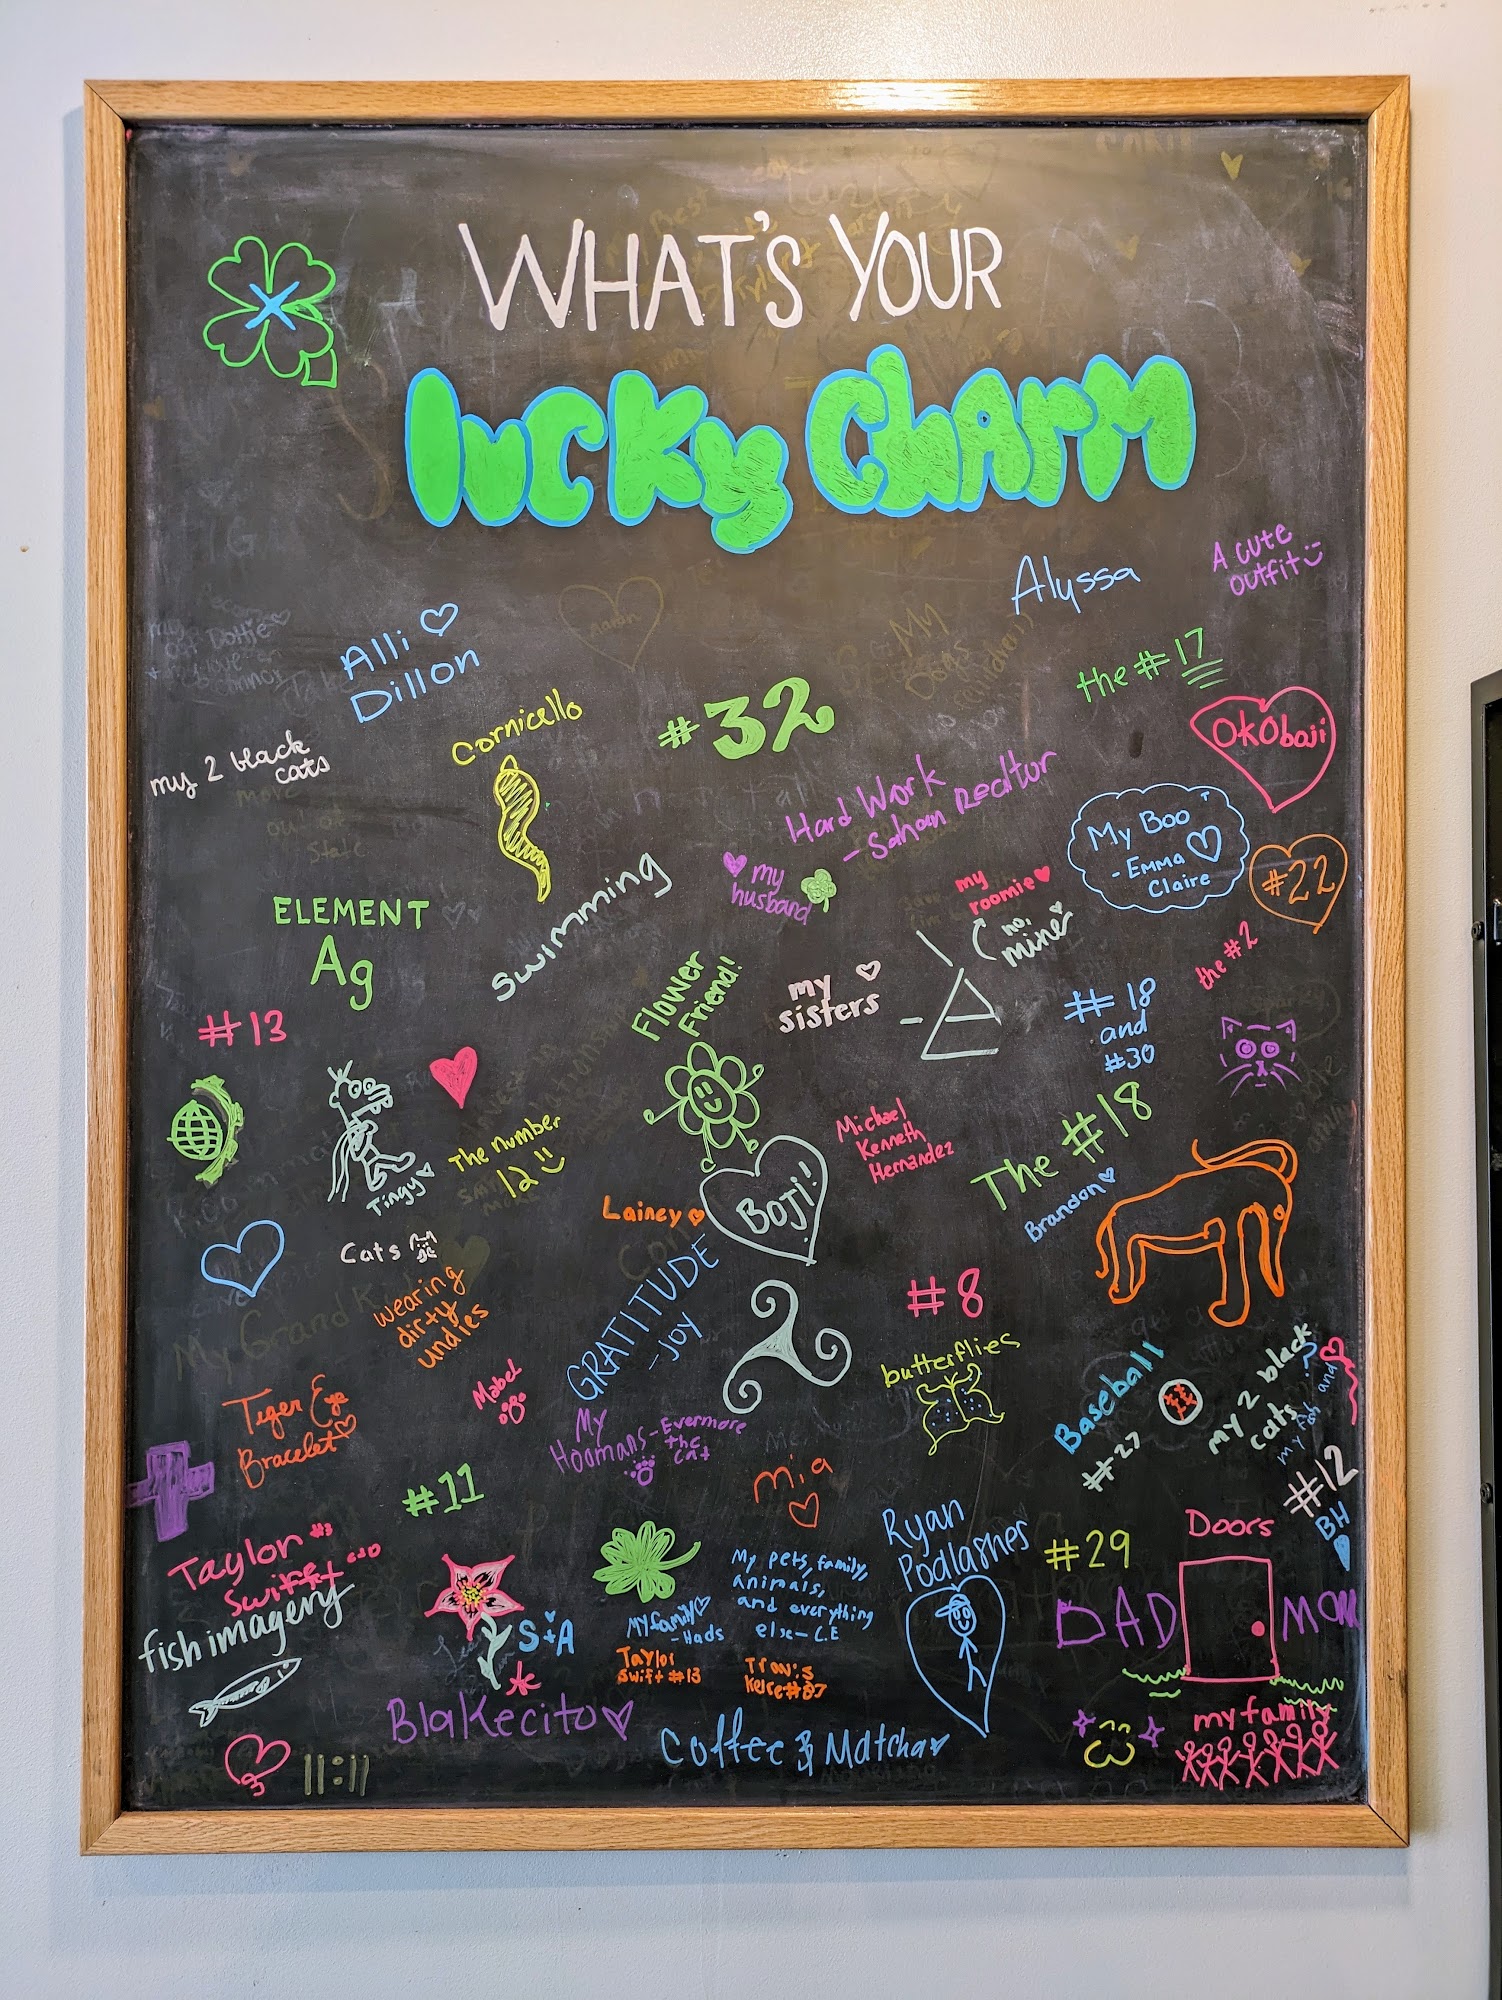 WHAT'S YOUR
lucky Charm
A cute
outfit
Alyssa
Alli
Dillon
Aaron
the #17
OkOboji
Cornicello
#32
my 2 black
cats
Hard Work
My Boo
- Emma
Claire
#22
my
husband
my
roomie
no,
mine
swimming
ELEMENT
Ag
Flower
Friend!
my
sisters
the #2
#18
and
#30
#13
The number
12
Michael
Kenneth
Hernandez
The #18
Brandon
Tingy
Lainey
BOJI!
Cats
wearing
dirty
undies
GRATITUDE
- JOY
#8
butterflies
Baseball
#27
my 2 black
cats
my fish and
Mabel
Tiger Eye
Bracelet
My
Hoomans - Evermore
the
cat
mia
#11
#12
BH
Ryan
Doors
#29
Taylor
Swift
fish imagery
My pets, family,
animals,
and everything
else - L.E
My family
- Hads
S+A
Taylor
Swift #13
Travis
Kelce #87
DAD
MOM
BlaKecito
Coffee & Matcha
my family
11:11